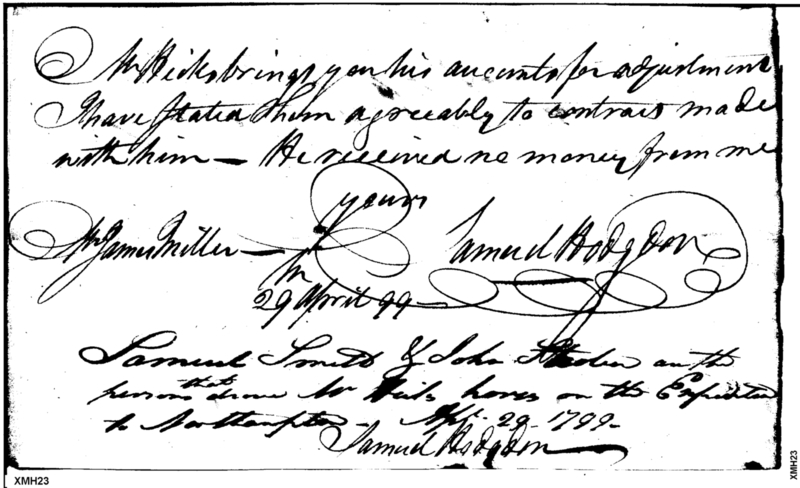 Mr Hicks brings you his accounts for adjustment
I have stated them agreeably to contracts made
with him — He received no money from me
yours
Mr James Miller — Samuel Hodgdon
29 April 99
Samuel Smith & John are the
persons that drove Mr Hicks horses on the Expedition
to Northampton — Apl. 29 - 1799 -
Samuel Hodgdon
XMH23
XMH23